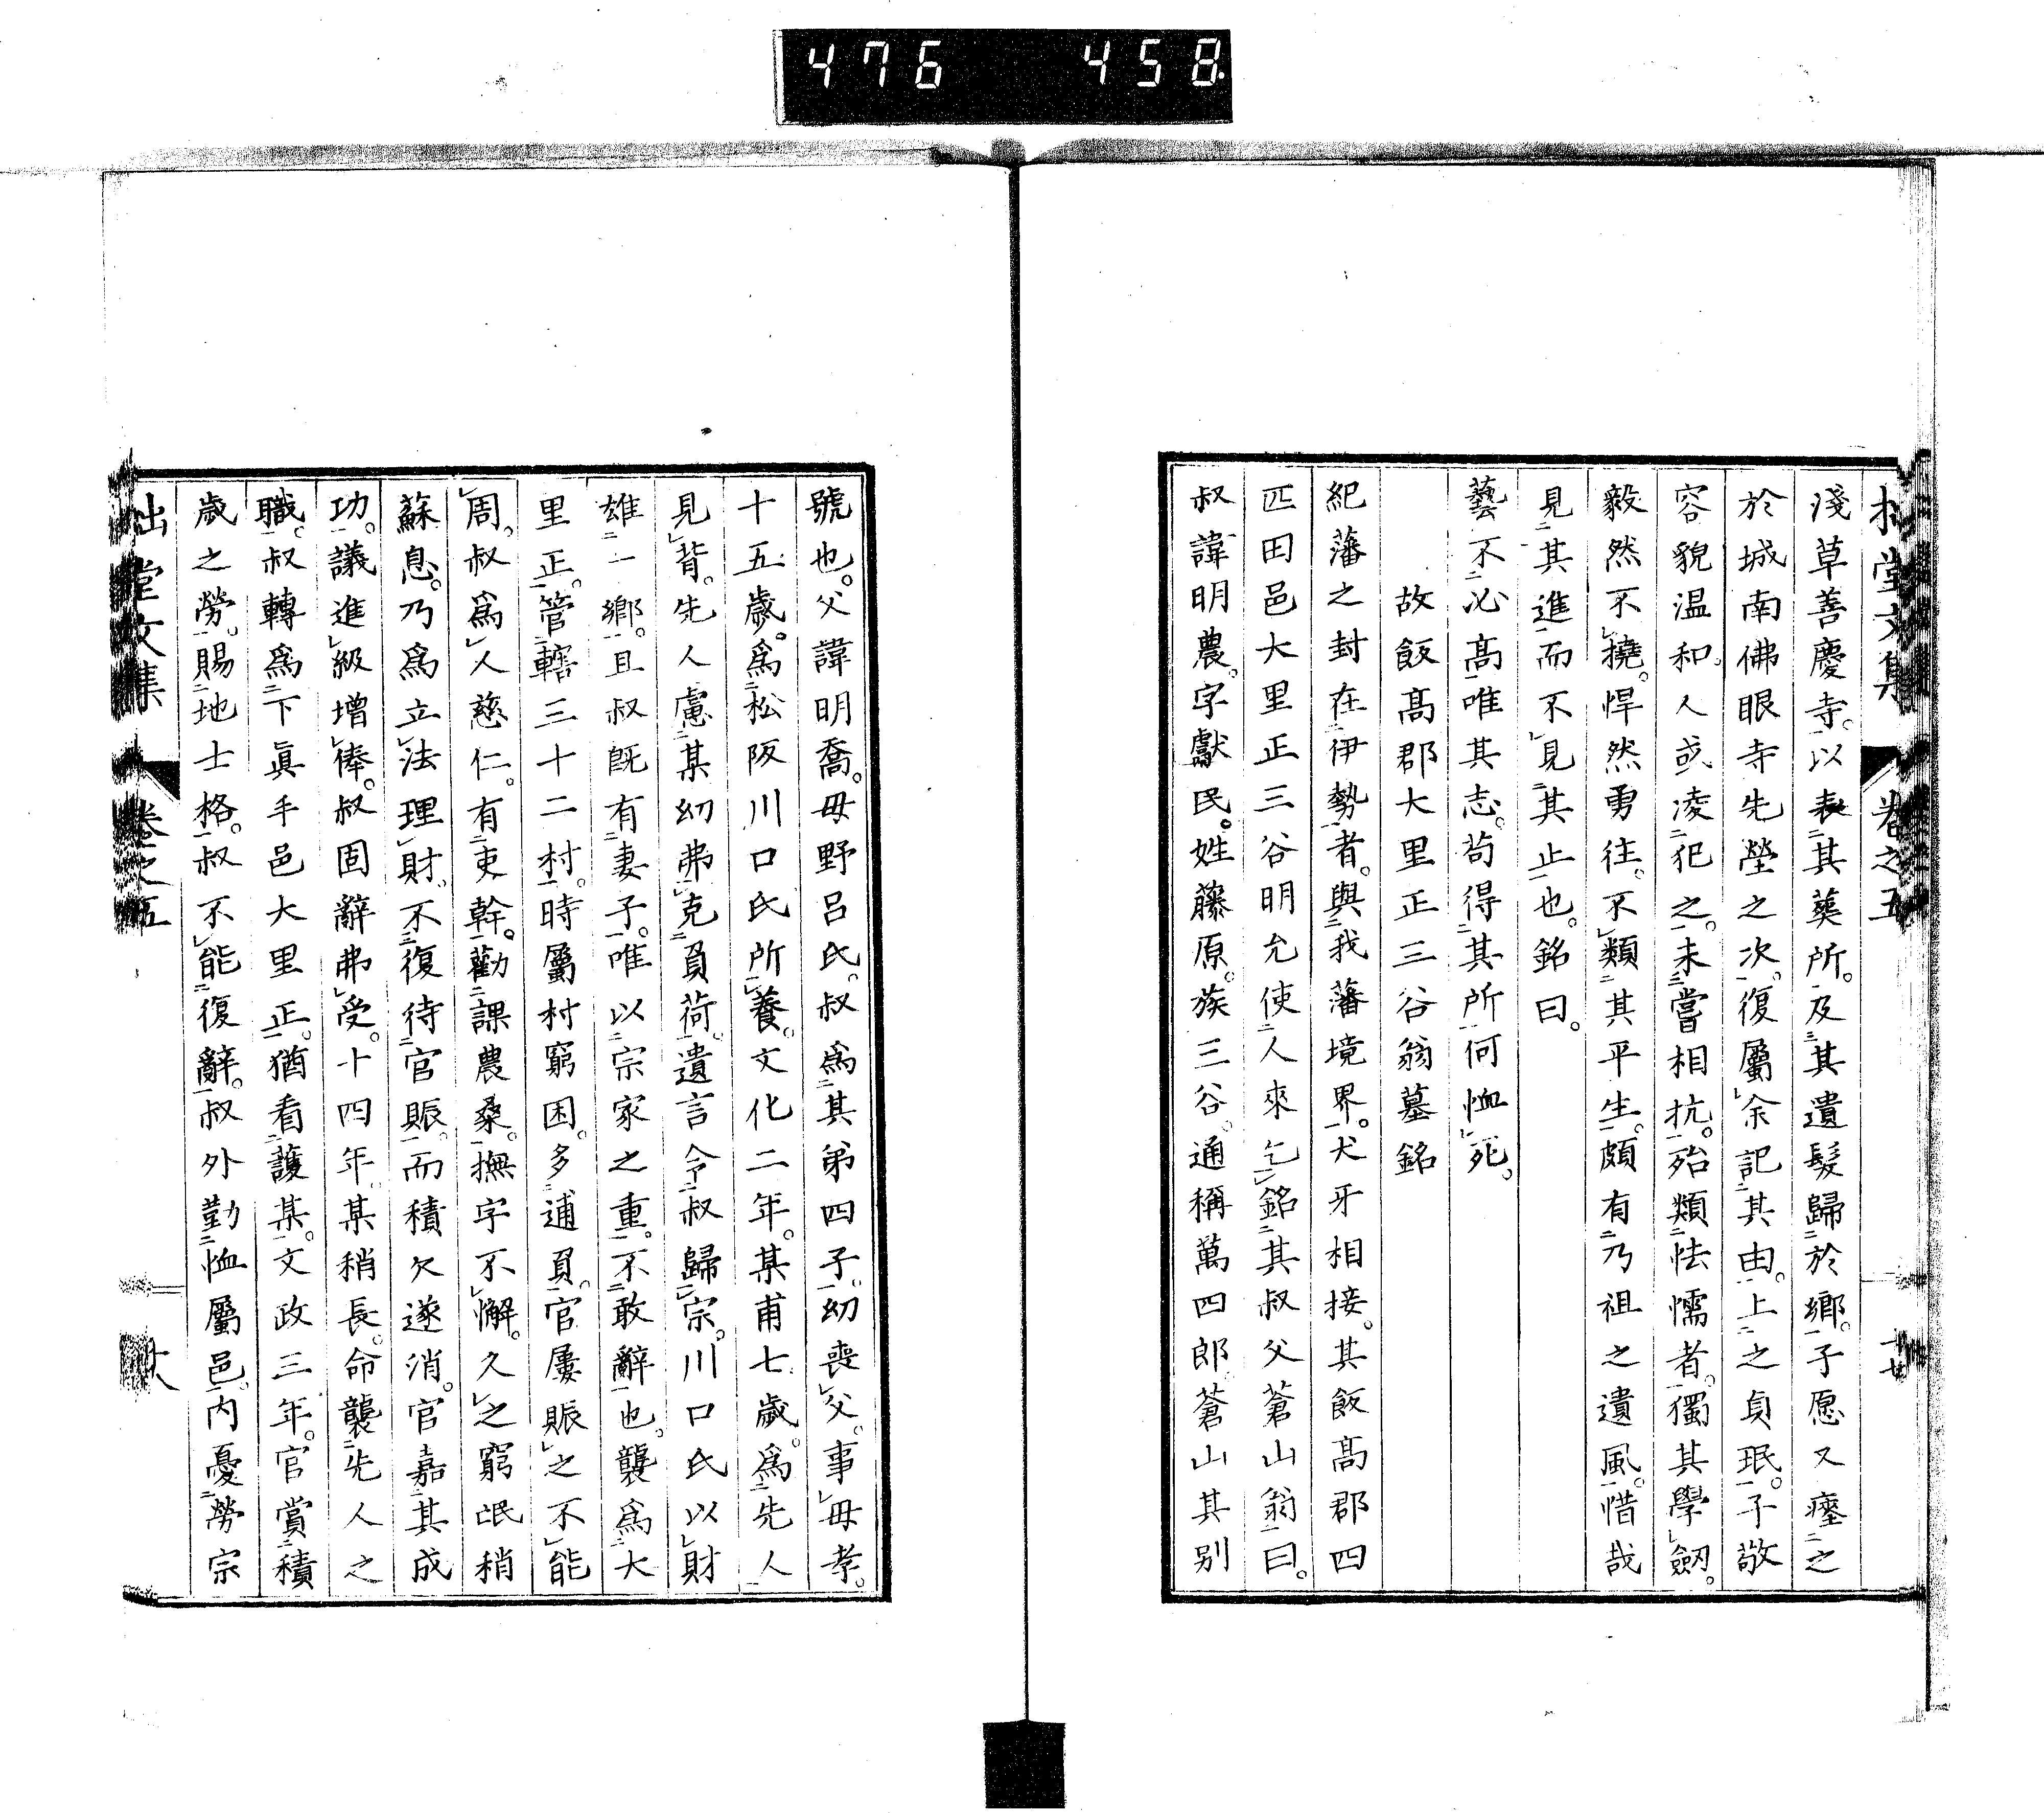 476 458
拙堂文集 卷之五
淺草善慶寺。以表其葬所。及其遺髮歸於鄉。子愿又瘞之
於城南佛眼寺先塋之次。復屬余記其由。上之貞珉。子敬
容貌温和。人或凌犯之。未嘗相抗。殆類怯懦者。獨其學劒。
毅然不撓。悍然勇往。不類其平生。頗有乃祖之遺風。惜哉
見其進而不見其止也。銘曰。
藝不必高。唯其志。苟得其所。何恤死。
故飯高郡大里正三谷翁墓銘
紀藩之封在伊勢者。與我藩境界。犬牙相接。其飯高郡四
匹田邑大里正三谷明允使人來乞銘其叔父蒼山翁曰。
叔諱明農。字獻民。姓藤原。族三谷。通稱萬四郎。蒼山其別
號也。父諱明喬。母野呂氏。叔爲其弟四子。幼喪父。事母孝。
十五歲。爲松阪川口氏所養。文化二年。某甫七歲。爲先人
見背。先人慮某幼弗克負荷。遺言令叔歸宗。川口氏以財
雄一鄉。且叔既有妻子。唯以宗家之重。不敢辭也。襲爲大
里正。管轄三十二村。時屬村窮困。多逋負。官屢賑之不能
周。叔爲人慈仁。有吏幹。勸課農桑。撫字不懈。久之窮氓稍
蘇息。乃爲立法理財。不復待官賑。而積欠遂消。官嘉其成
功。議進級增俸。叔固辭弗受。十四年。某稍長。命襲先人之
職。叔轉爲下眞手邑大里正。猶看護某。文政三年。官賞積
歲之勞。賜地士格。叔不能復辭。叔外勤恤屬邑。内憂勞宗
拙堂文集 卷之五